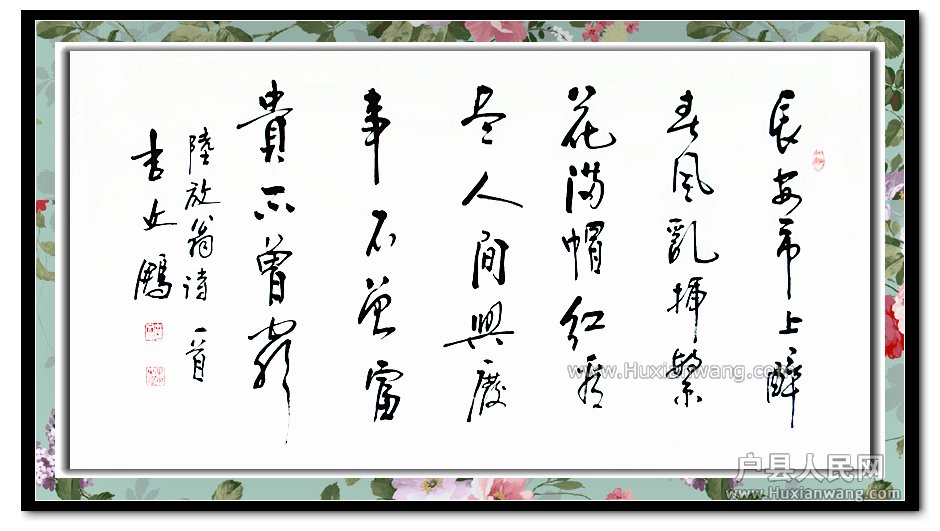 長安市上醉
春風亂插繁
花滿帽紅看
尽人間興廢
事不曾富
貴不曾窮
陸放翁詩一首
吉文鵬
www.Huxianwang.com
户县人民网
www.Huxianwang.com